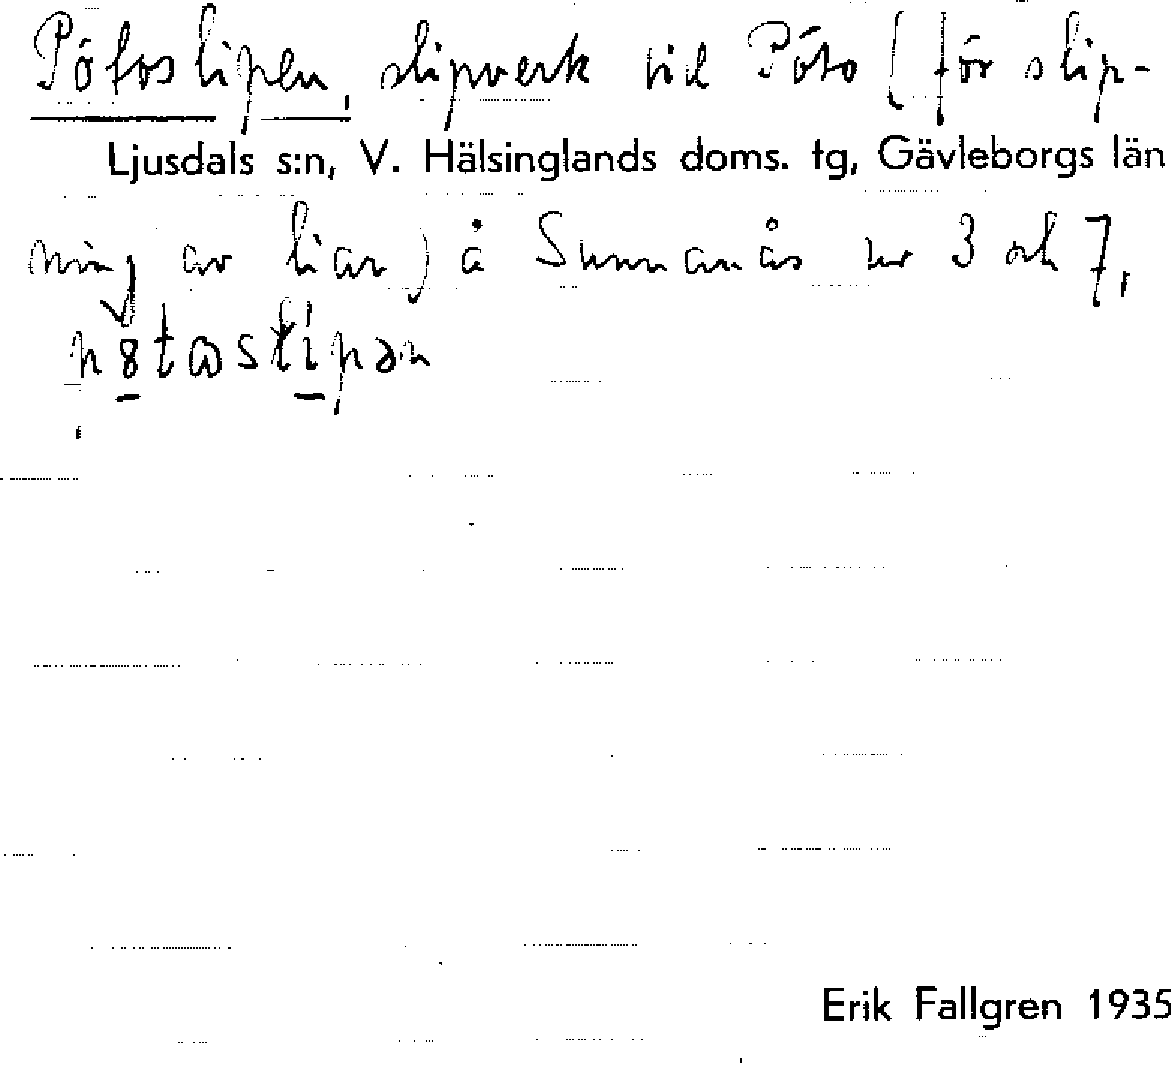 Pótoslipen, slipverk vid Póto (för slip-
Ljusdals s:n, V. Hälsinglands doms. tg, Gävleborgs län
ning av liar) å Sunnanås nr 3 och 7,
Erik Fallgren 1935